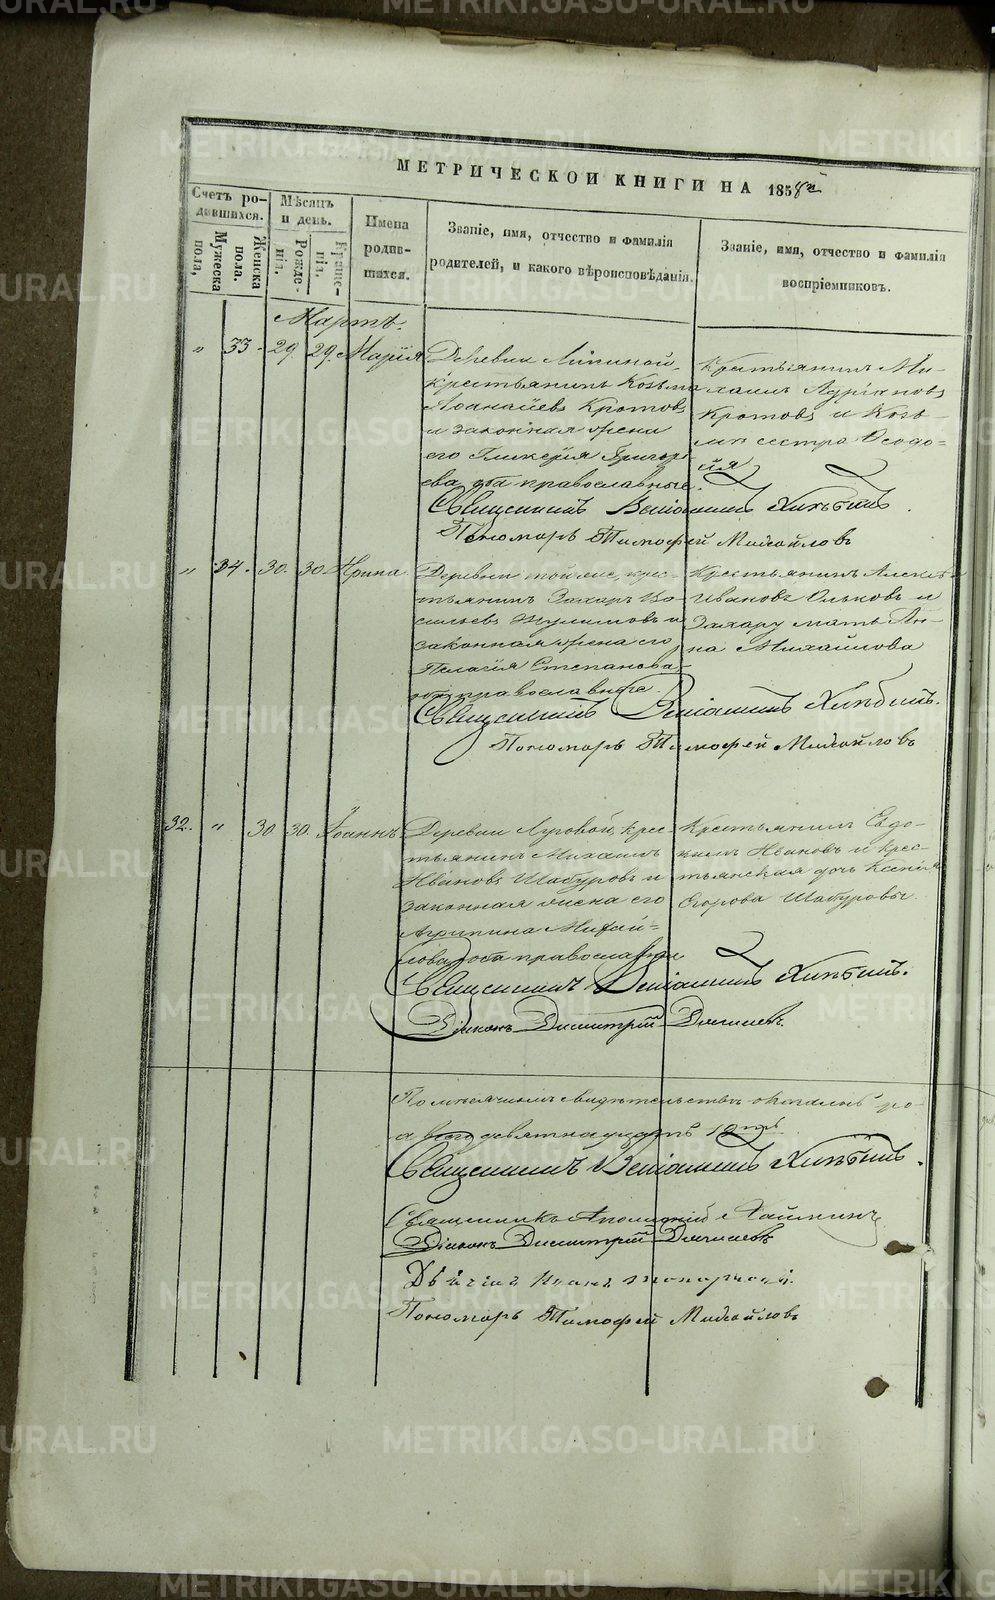 МЕТРИЧЕСКОЙ КНИГИ НА 1858й
Счетъ ро-
дившихся.
Мужеска
пола,
Женска
пола.
Мѣсяцъ
и день.
Рожде-
нія.
Креще-
нія.
Имена
родив-
шихся.
Званіе, имя, отчество и фамилія
родителей, и какого вѣроисповѣданія.
Званіе, имя, отчество и фамилія
воспріемниковъ.
Мартъ.
" 33 29 29 Марія
Деревни Липиной,
крестьянинъ Козьма
Аѳанасьевъ Кротовъ
и законная жена
его Гликерія Григорь
ева, оба православные.
Крестьянинъ Ми-
хаилъ Адріановъ
Кротовъ и Козь-
мы сестра Ѳеодо-
сія
Священникъ Веніаминъ Хлѣбинъ.
Пономарь Тимофей Михайловъ
" 34. 30. 30 Ирина
Деревни той же, крес-
тьянинъ Захаръ Ва
сильевъ и
законная жена его
Пелагія Степанова
оба православные.
Крестьянинъ Алексѣй
Ивановъ Ольковъ и
Захару мать Ан-
на Михайлова
Священникъ Веніаминъ Хлѣбинъ.
Пономарь Тимофей Михайловъ
32. " 30 30. Іоаннъ
Деревни Луговой, крес-
тьянинъ Михаилъ
Ивановъ Шабуровъ и
законная жена его
Агрипина Михай-
лова, оба православные
Крестьянинъ Евдо-
кимъ Ивановъ и крес-
тьянская дочь Ксенія
Егорова Шабуровы.
Священникъ Веніаминъ Хлѣбинъ.
Діаконъ Димитрій
По мѣсячномъ свидѣтельствѣ
девятнадцать 19ть
Священникъ Веніаминъ Хлѣбинъ.
Священникъ
Діаконъ Димитрій
Дьячекъ Иванъ
Пономарь Тимофей Михайловъ
METRIKI.GASO-URAL.RU